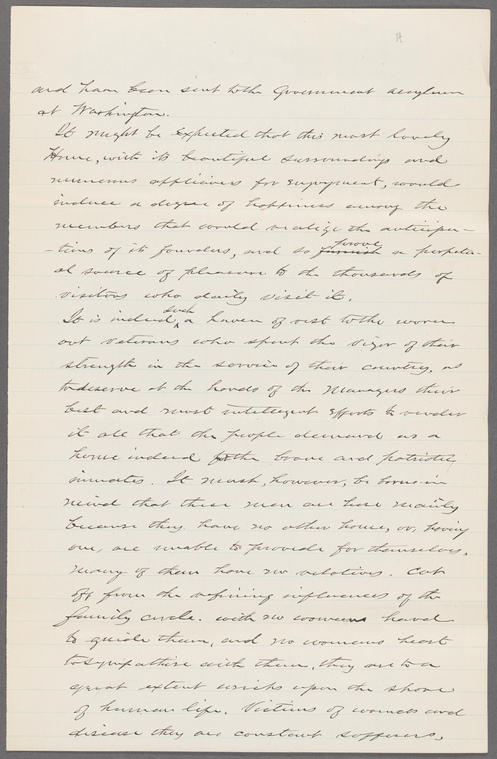 and have been sent to the Government asylum
at Washington.
It might be expected that this most lovely
Home, with its beautiful surroundings and
numerous appliances for enjoyment, would
induce a degree of happiness among the
members that would realize the anticipa-
-tions of its founders, and so furnish prove a perpetu-
al source of pleasure to the thousands of
visitors who daily visit it.
It is indeed such a haven of rest to the worn
out Veterans who spent the vigor of their
strength in the service of their country, as
to deserve at the hands of the Managers their
best and most intelligent efforts to render
it all that the people demand as a
home indeed for the brave and patriotic
inmates. It must, however, be borne in
mind that these men are here mainly
because they have no other home, or, having
one, are unable to provide for themselves.
Many of them have no relatives. Cut
off from the refining influences of the
family circle. with no womans hand
to guide them, and no womans heart
to sympathise with them, they are to a
great extent wrecks upon the shore
of human life. Victims of wounds and
disease they are constant sufferers,